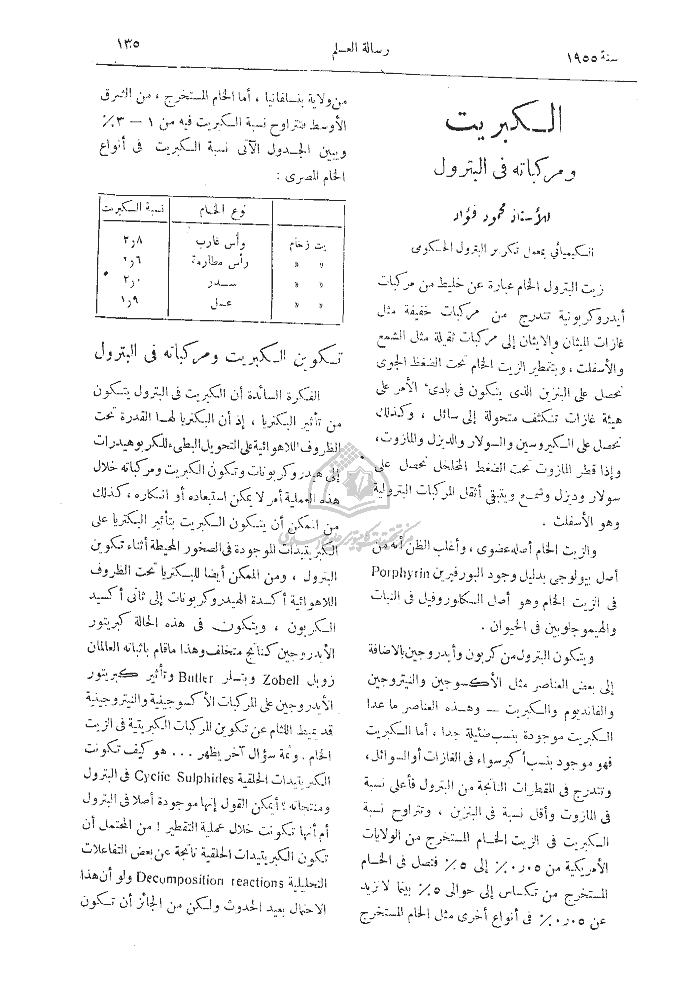 سنة ١٩٥٥
رسالة العلم
١٣٥
الكبريت
ومركباته فى البترول
للأستاذ محمود فؤاد
الكيميائي بمعمل تكرير البترول الحكومى
زيت البترول الخام عبارة عن خليط من مركبات
أيدروكربونية تتدرج من مركبات خفيفة مثل
غازات الميثان والايثان إلى مركبات ثقيلة مثل الشمع
والأسفلت ، وبتقطير الزيت الخام تحت الضغظ الجوى
نحصل على البنزين الذى يتكون فى بادىء الأمر على
هيئة غازات تتكثف متحولة إلى سائل ، وكذلك
نحصل على الكيروسين والسولار والديزل والمازوت،
وإذا قطر المازوت تحت الضغط المخلخل نحصل على
سولار وديزل وشمع ويتبقى أثقل المركبات البترولية
وهو الأسفلت .
والزيت الخام أصله عضوى ، وأغلب الظن أنه من
أصل بيولوجى بدليل وجود البورفيرين Porphyrin
فى الزيت الخام وهو أصل الكلوروفيل فى النبات
والهيموجلوبين فى الحيوان .
ويتكون البترول من كربون وأيدروجين بالاضافة
إلى بعض العناصر مثل الأكسوجين والنيتروجين
والفانديوم والكبريت — وهذه العناصر ما عدا
الكبريت موجودة بنسب ضئيلة جدا ، أما الكبريت
فهو موجود بنسب أكبر سواء فى الغازات أو السوائل،
وتتدرج فى المقطرات الناتجة من البترول فأعلى نسبة
فى المازوت وأقل نسبة فى البنزين ، وتتراوح نسبة
الكبريت فى الزيت الخام المستخرج من الولايات
الأمريكية من ٠٫٠٥٪ إلى ٥٪ فتصل فى الخام
المستخرج من تكساس إلى حوالى ٥٪ بينما لا تزيد
عن ٠٫٠٥٪ فى أنواع أخرى مثل الخام المستخرج
من ولاية بنسلفانيا ، أما الخام المستخرج ، من الشرق
الأوسط فتتراوح نسبة الكبريت فيه من ١ — ٣٪
ويبين الجدول الآتى نسبة الكبريت فى أنواع
الخام المصرى :
نوع الخام نسبة الكبريت
زيت خام رأس غارب ٢٫٨
» » رأس مطارمة ٢٫٦
» » سدر ٢٫٠
» » عسل ١٫٩
تكوين الكبريت ومركباته فى البترول
الفكرة السائدة أن الكبريت فى البترول يتكون
من تأثير البكتريا ، إذ أن البكتريا لها القدرة تحت
الظروف اللاهوائية على التحويل البطىء للكربوهيدرات
إلى هيدروكربونات وتكون الكبريت ومركباته خلال
هذه العملية أمر لا يمكن استبعاده أو انكاره ، كذلك
من الممكن أن يتكون الكبريت بتأثير البكتريا على
الكبريتيدات الموجودة فى الصخور المحيطة أثناء تكوين
البترول ، ومن الممكن أيضا للبكتريا تحت الظروف
اللاهوائية أكسدة الهيدروكربونات إلى ثانى أكسيد
الكربون ، ويتكون فى هذه الحالة كبريتور
الأيدروجين كناتج متخلف وهذا ماقام باثباته العالمان
زوبل Zobell وبتلر Butler وتأثير كبريتور
الأيدروجين على المركبات الأكسوجينية والنيتروجينية
قد يميط اللثام عن تكوين المركبات الكبريتية فى الزيت
الخام . وثمة سؤال آخر يظهر ... هو كيف تكونت
الكبريتيدات الحلقية Cyclic Sulphides فى البترول
ومنتجاته ؟ أيمكن القول إنها موجودة أصلا فى البترول
أم أنها تكونت خلال عملية التقطير ! من المحتمل أن
تكون الكبريتيدات الحلقية ناتجة عن بعض التفاعلات
التحليلية Decomposition reactions ولو أن هذا
الاحتمال بعيد الحدوث ولكن من الجائز أن تكون